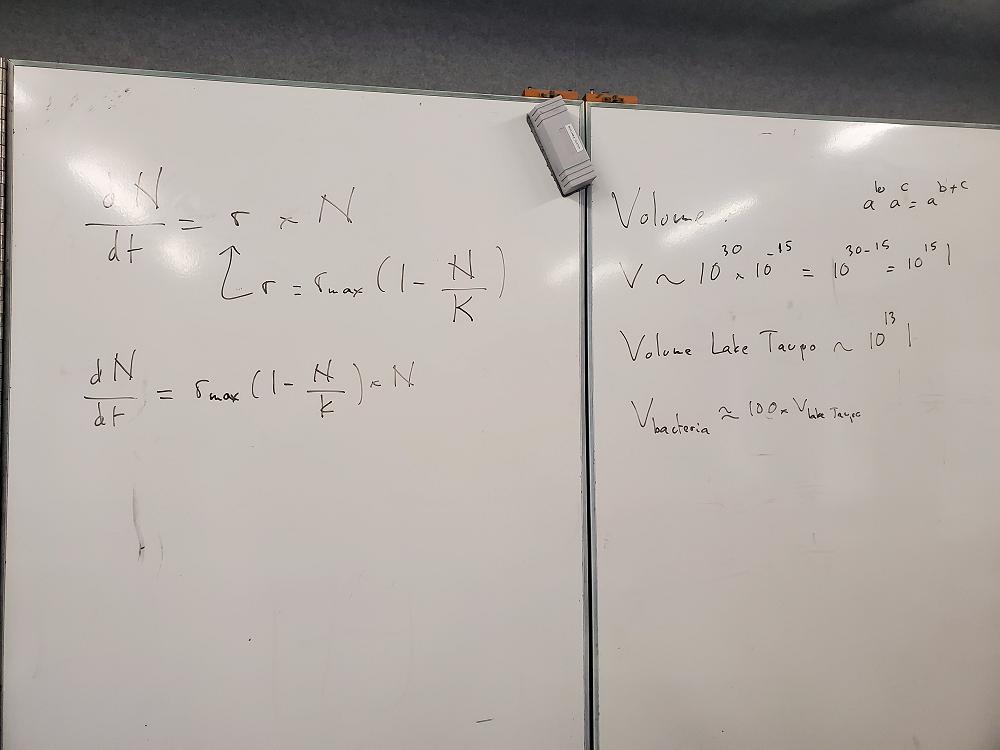 dN/dt = r × N
r = rmax (1 - N/K)
dN/dt = rmax (1 - N/K) × N
Volume:
a^b a^c = a^b+c
V ~ 10^30 × 10^-15 = 10^30-15 = 10^15 l
Volume Lake Taupo ~ 10^13 l
Vbacteria ≈ 100 × Vlake Taupo